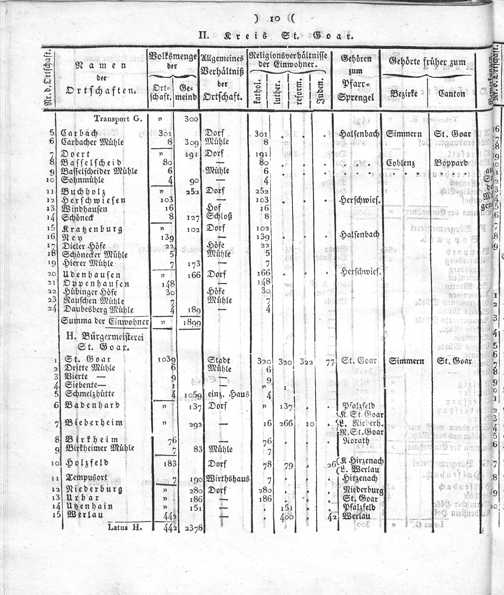 ) 10 ((
II. Kreis St. Goar.
Nr. d. Ortschaft. Namen der Ortschaften. Volksmenge der Ortschaft. Gemeind Allgemeines Verhältniß der Ortschaft. Religionsverhältnisse der Einwohner. kathol. luther. reform. Juden. Gehören zum Pfarr-Sprengel Gehörte früher zum Bezirke Canton
Transport G. " 300
5 Carbach 301 Dorf 301 . . . Halsenbach Simmern St. Goar
6 Carbacher Mühle 8 309 Mühle 8
7 Doert " 191 Dorf 191
8 Basselscheid 80 — 80 Coblenz Boppard
9 Basselscheider Mühle 6 Mühle 6
10 Sohnmühle 4 90 — 4
11 Buchholz " 252 Dorf 252
12 Herschwiesen 103 — 103 Herschwies.
13 Windhausen 16 Hof 16
14 Schöneck 8 127 Schloß 8
15 Kratzenburg " 102 Dorf 102
16 Ney 139 — 139 Halsenbach
17 Dieler Höfe 22 Höfe 22
18 Schönecker Mühle 5 Mühle 5
19 Hierer Mühle 7 173 — 7
20 Udenhausen " 166 Dorf 166 Herschwies.
21 Oppenhausen 148 — 148
22 Hübinger Höfe 30 Höfe 30
23 Rauschen Mühle 7 Mühle 7
24 Daubesberg Mühle 4 189 — 4
Summa der Einwohner " 1899
H. Bürgermeisterei
St. Goar.
1 St. Goar 1039 Stadt 320 320 322 77 St. Goar Simmern St. Goar
2 Dritte Mühle 6 Mühle 6
3 Vierte — 9 — 9
4 Siebente — 1 — " 1
5 Schmelzhütte 4 1059 einz. Haus 4
6 Badenhard " 137 Dorf " 137 . . Pfalzfeld
K. St. Goar
7 Bieberheim " 292 — 16 266 10 . L. Bieberh.
R. St. Goar
8 Birkheim 76 — 76 . Norath
9 Birkheimer Mühle 7 83 Mühle 7
10 Holzfeld 183 Dorf 78 79 . 26 K. Hirzenach
L. Werlau
11 Tempusort 7 190 Wirthshaus 7 Hirzenach
12 Niederburg " 280 Dorf 280 Niederburg
13 Urbar " 186 — 186 St. Goar
14 Utzenhain " 151 — . 151 Pfalzfeld
15 Werlau 442 — . 400 . 42 Werlau
Latus H. 442 2378